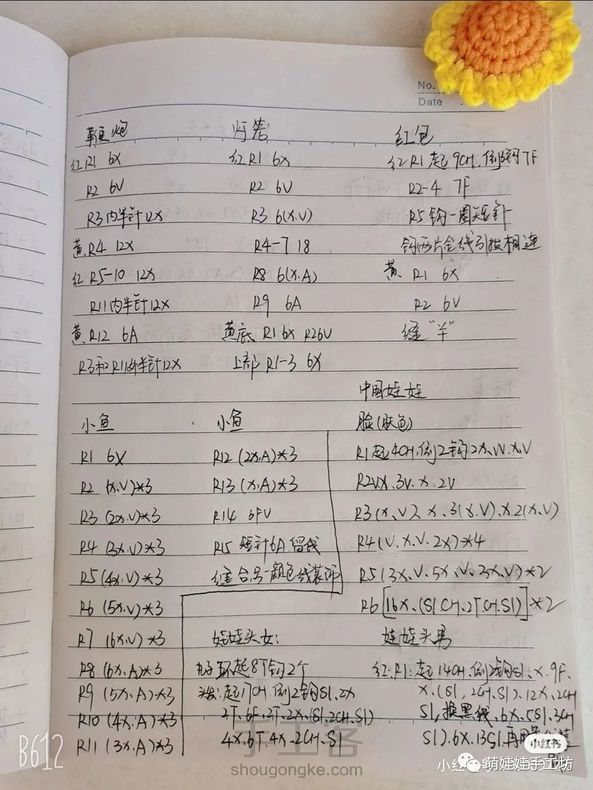 No.
Date
鞭炮
红R1 6X
R2 6V
R3内半针12X
黄R4 12X
红R5-10 12X
R11内半针12X
黄R12 6A
R3和R11外半针12X
灯笼
红R1 6X
R2 6V
R3 6(X.V)
R4-7 18
R8 6(X.A)
R9 6A
黄底 R1 6X R26V
上部 R1-3 6X
红包
红R1起9CH.倒3钩7F
R2-4 7F
R5钩一圈短针
钩两片金线引拔相连
黄 R1 6X
R2 6V
缝"羊"
小鱼
R1 6X
R2 (X.V)*3
R3 (2X.V)*3
R4 (3X.V)*3
R5 (4X.V)*3
R6 (5X.V)*3
R7 (6X.V)*3
R8 (6X.A)*3
R9 (5X.A)*3
R10 (4X.A)*3
R11 (3X.A)*3
小鱼
R12 (2X.A)*3
R13 (X.A)*3
R14 6FV
R15 短针6A留线
缝合另一颜色线装饰
中国娃娃
脸(肤色)
R1起4CH.倒2钩2X.W.X.V
R2VX.3V.X.2V
R3(X.V).X.3(X.V).X.2(X.V)
R4(V.X.V.2X)*4
R5(3X.V.5X.V.3X.V)*2
R6[16X.(S1CH.2TCH.S1)]*2
娃娃头女:
环起8T钩2个
起17CH倒2钩S1.2X
2T.6F.2T.2X.(S1.2CH.S1)
4X.6T.4X.2CH.S1
娃娃头男
红:R1:起14CH.倒2钩S1.X.9F.
X.(S1.2CH.S1).12X.2CH
S1,换黑线.6X.(S1.3CH
S1).6X.13S1.再
B612
手工客
shougongke.com
小红书
萌娃娃手工坊